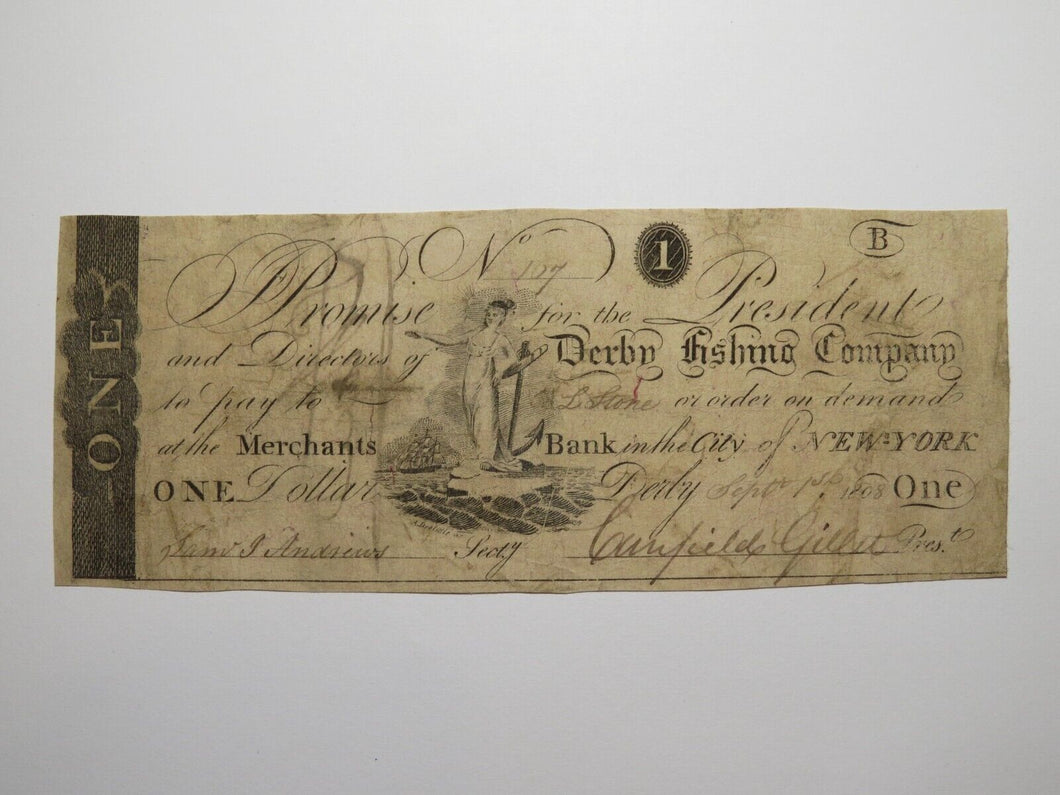 ONE
No 107 1 B
I Promise for the President
and Directors of Derby Fishing Company
to pay to L Stone or order on demand
at the Merchants Bank in the City of NEW-YORK
ONE Dollar Derby Sept 1st 1808 One
Andrews Secty Canfield Gillet Prest